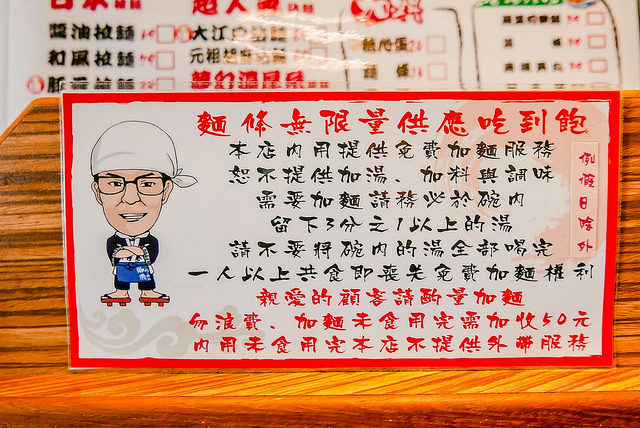 醬油拉麵
和風拉麵
麵無限量供應吃到飽
本店內用提供免費加麵服務
恕不提供加湯、加料與調味
需要加麵請務必於碗內
留下3分之1以上的湯
請不要將碗內的湯全部喝完
一人以上共食即喪失免費加麵權利
親愛的顧客請酌量加麵
勿浪費、加麵未食用完需加收50元
內用未食用完本店不提供外帶服務
例假日除外